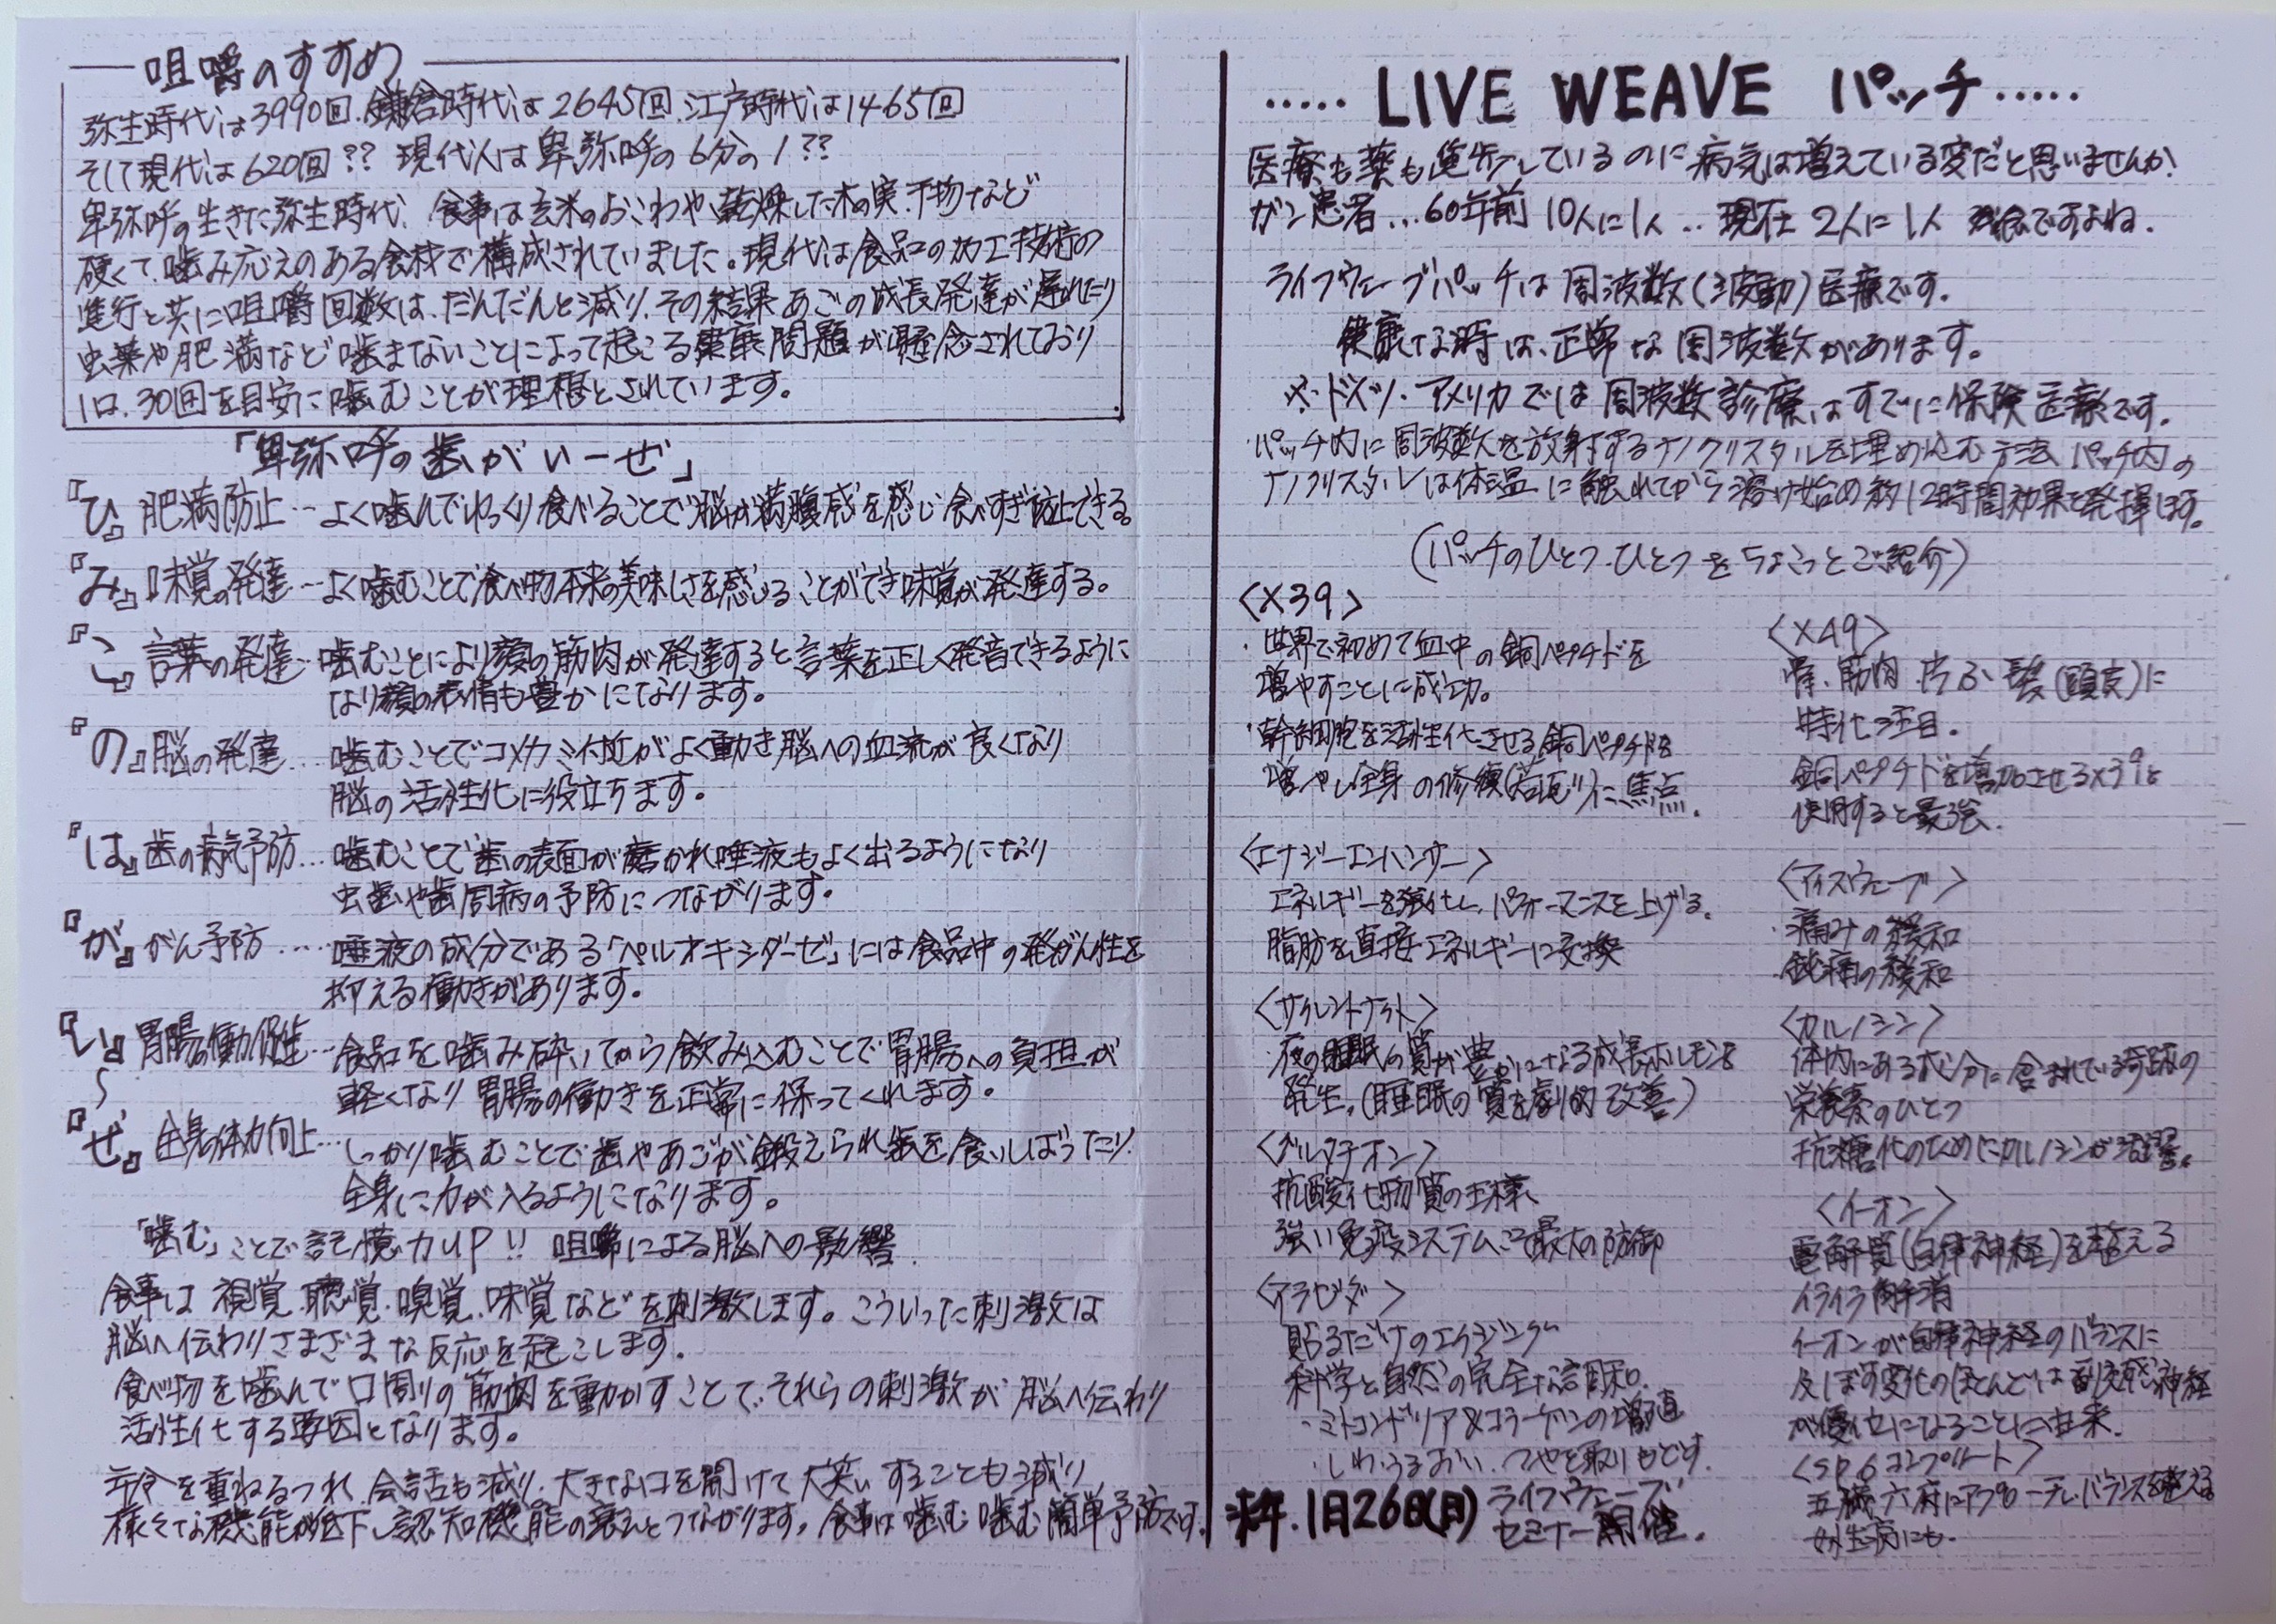 咀嚼のすすめ
弥生時代は3990回.鎌倉時代は2645回.江戸時代は1465回
そして現代は620回?? 現代人は卑弥呼の6分の1??
卑弥呼の生きた弥生時代、食事は玄米のおこわや、乾燥した木の実.干物など
硬くて.噛み応えのある食材で構成されていました。現代は食品の加工技術の
進行と共に咀嚼回数は、だんだんと減り、その結果あごの成長発達が遅れたり
虫歯や肥満など噛まないことによって起こる健康問題が懸念されており
1口、30回を目安に噛むことが理想とされています。
「卑弥呼の歯がいーぜ」
『ひ』肥満防止…よく噛んでゆっくり食べることで脳が満腹感を感じ食べすぎ防止できる。
『み』味覚の発達…よく噛むことで食べ物本来の美味しさを感じることができ味覚が発達する。
『こ』言葉の発達…噛むことにより顔の筋肉が発達すると言葉を正しく発音できるように
なり顔の表情も豊かになります。
『の』脳の発達…噛むことでコメカミ付近がよく動き脳への血流が良くなり
脳の活性化に役立ちます。
『は』歯の病気予防…噛むことで歯の表面が磨かれ唾液もよく出るようになり
虫歯や歯周病の予防につながります。
『が』がん予防……唾液の成分である「ペルオキシダーゼ」には食品中の発がん性を
抑える働きがあります。
『い』胃腸の働促進…食品を噛み砕いてから飲み込むことで胃腸への負担が
軽くなり胃腸の働きを正常に保ってくれます。
〜
『ぜ』全身の体力向上…しっかり噛むことで歯やあごが鍛えられ歯を食いしばったり
全身に力が入るようになります。
「噛む」ことで記憶力UP!! 咀嚼による脳への影響
食事は 視覚.聴覚.嗅覚.味覚などを刺激します。こういった刺激は
脳へ伝わりさまざまな反応を起こします。
食べ物を噛んで口周りの筋肉を動かすことで、それらの刺激が脳へ伝わり
活性化する要因となります。
年令を重ねるつれ.会話も減り.大きな口を開けて大笑いすることも減り
様々な機能が低下し認知機能の衰えとつながります。食事は噛む噛む簡単予防です。
‥‥‥LIVE WEAVE パッチ‥‥‥
医療も薬も進歩しているのに病気は増えている変だと思いませんか!
ガン患者…60年前10人に1人…現在2人に1人 残念ですよね.
ライフウェーブパッチは周波数(波動)医療です.
健康な時は、正常な周波数があります。
※.ドイツ.アメリカでは周波数診療はすでに保険医療です.
・パッチ内に周波数を放射するナノクリスタルを埋め込む方法 パッチ内の
ナノクリスタルは体温に触れてから溶け始め約12時間効果を発揮します。
(パッチのひとつ.ひとつをちょこっとご紹介)
<X39>
・世界で初めて血中の銅ペプチドを
増やすことに成功。
・幹細胞を活性化させる銅ペプチドを
増やし全身の修復(若返り)に焦点.
<エナジーエンハンサー>
エネルギーを強化し、パフォーマンスを上げる.
脂肪を直接エネルギーに交換
<サイレントナイト>
・夜の睡眠の質が豊かになる成長ホルモンを
発生.(睡眠の質を劇的改善)
<グルタチオン>
抗酸化物質の王様、
強い免疫システムで最大の防御
<アラビダ>
貼るだけのエイジング
科学と自然の完全な調和.
・ミトコンドリア&コラーゲンの増殖
・しわ.うるおい.つやを取りもどす.
来年.1月26日(月) ライフウェーブ
セミナー開催.
<X49>
骨、筋肉.皮ふ.髪(頭皮)に
特化注目.
銅ペプチドを増加させるX39と
使用すると最強.
<アイスウェーブ>
・痛みの緩和
・鈍痛の緩和
<カルノシン>
体内にある成分に含まれている奇跡の
栄養素のひとつ
抗糖化のためにカルノシンが活躍。
<イーオン>
電解質(自律神経)を整える
イライラ解消
イーオンが自律神経のバランスに
及ぼす変化のほとんどは副交感神経
が優位になることに由来.
<SP6コンプリート>
五臓六府にアプローチしバランスを整える